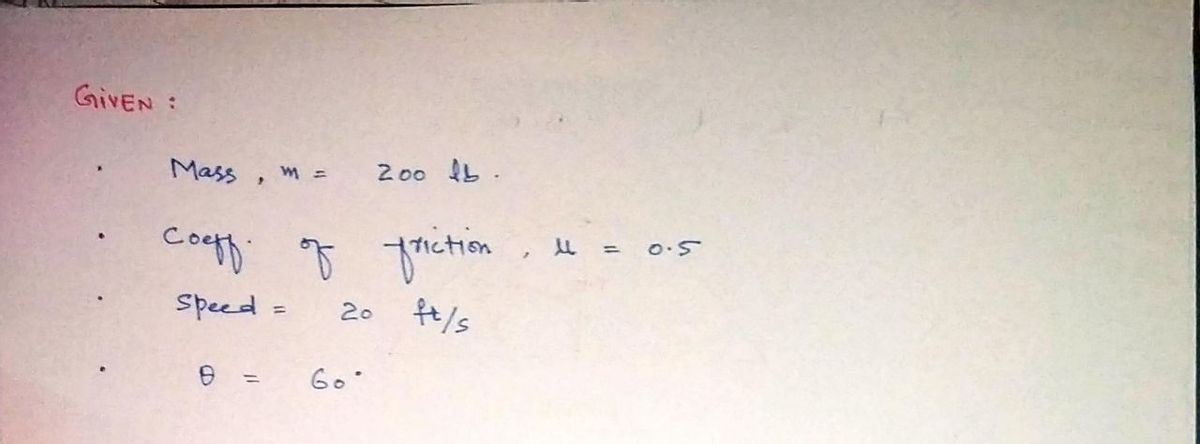 GIVEN :
• Mass , m = 200 lb .
• Coeff. of friction , μ = 0.5
• Speed = 20 ft/s
• θ = 60°